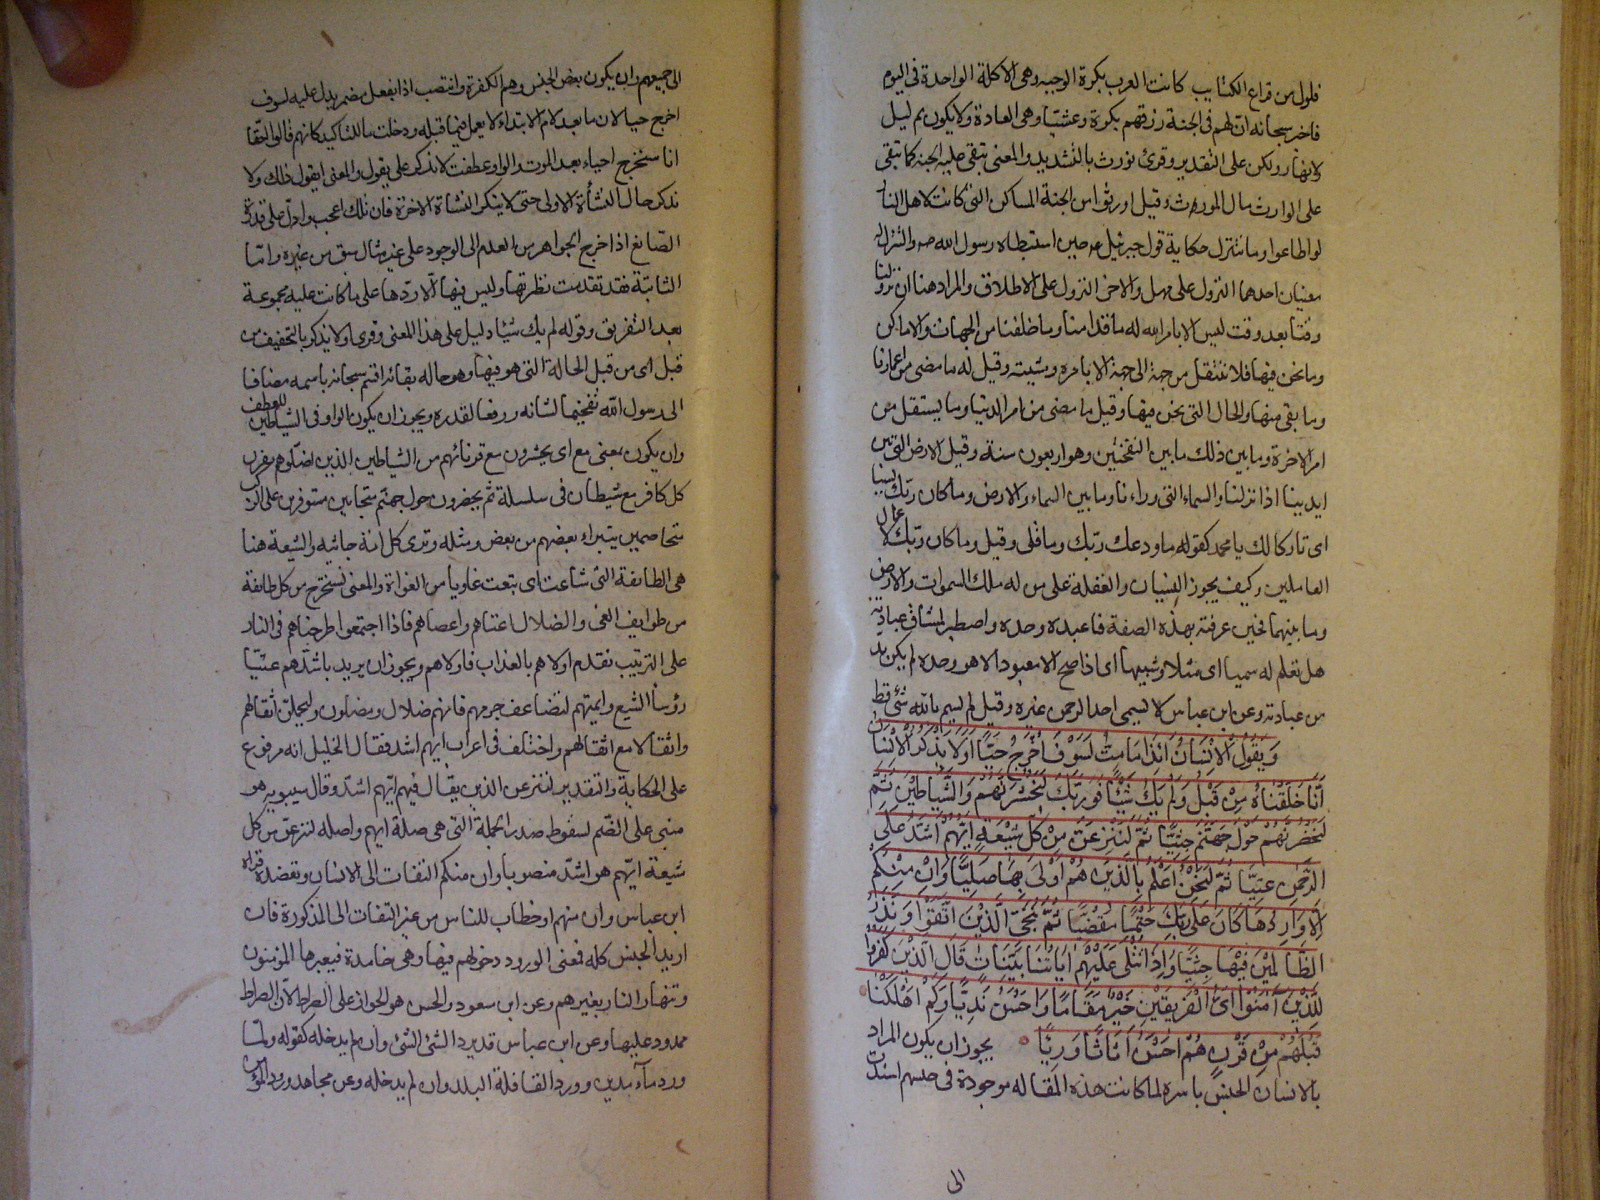 فلول من قراع الكتايب كانت العرب بكرة الوجبه وهى الاكلة الواحدة فى اليوم
فاخبر سبحانه ان لهم فى الجنة رزقهم بكرة وعشيّا وهى العادة ولا يكون ثم ليل
ولا نهار ولكن على التقدير وقرئ نورث بالتشديد والمعنى تبقى عليه الجنه كما تبقى
على الوارث مال المورث وقيل اورثوا من الجنة المساكن التى كانت لاهل النار
لو اطاعوا وما نتنزل حكاية قول جبرئيل حين استبطاه رسول الله والتنزل له
معنيان احدهما النزول على مهل والاخر النزول على الاطلاق والمراد هنا ان نزولنا
وقتا بعد وقت ليس الا بامر الله له ما قدامنا وما خلفنا من الجهات والاماكن
وما نحن فيها فلا ننتقل من جهة الى جهة الا بامره ومشيته وقيل له ما مضى من اعمارنا
وما بقى منها والحال التى نحن فيها وقيل ما مضى من امر الدنيا وما يستقبل من
امر الاخرة وما بين ذلك ما بين النفختين وهو اربعون سنة وقيل الارض التى بين
ايدينا اذا نزلنا والسماء التى وراءنا وما بين السماء والارض وما كان ربّك نسيا
اى تاركا لك يا محمد كقوله ما ودعك ربّك وما قلى وقيل وما كان ربّك لاعمال
العاملين وكيف يجوز النسيان والغفلة على من له ملك السموات والارض
وما بينهما فحين عرفته بهذه الصفة فاعبده وحده واصطبر لمشاق عبادته
هل تعلم له سميا اى مثلا وشبيها اى اذا صح الا معبود الا هو وحده لم يكن بد
من عبادته وعن ابن عباس لا يسمى احد الرحمن غيره وقيل لم يسم بالله شئ قط
وَيَقُولُ الْاِنْسَانُ ائِذَا مَا مِتُّ لَسَوْفَ اُخْرَجُ حَيًّا اَوَلَا يَذْكُرُ الْاِنْسَانُ
اَنَّا خَلَقْنَاهُ مِنْ قَبْلُ وَلَمْ يَكُ شَيْئًا فَوَرَبِّكَ لَنَحْشُرَنَّهُمْ وَالشَّيَاطِيْنَ ثُمَّ
لَنُحْضِرَنَّهُمْ حَوْلَ جَهَنَّمَ جِثِيًّا ثُمَّ لَنَنْزِعَنَّ مِنْ كُلِّ شِيْعَةٍ اَيُّهُمْ اَشَدُّ عَلَى
الرَّحْمٰنِ عِتِيًّا ثُمَّ لَنَحْنُ اَعْلَمُ بِالَّذِيْنَ هُمْ اَوْلٰى بِهَا صِلِيًّا وَاِنْ مِنْكُمْ
اِلَّا وَارِدُهَا كَانَ عَلٰى رَبِّكَ حَتْمًا مَقْضِيًّا ثُمَّ نُنَجِّى الَّذِيْنَ اتَّقَوْا وَنَذَرُ
الظَّالِمِيْنَ فِيْهَا جِثِيًّا وَاِذَا تُتْلٰى عَلَيْهِمْ اٰيَاتُنَا بَيِّنَاتٍ قَالَ الَّذِيْنَ كَفَرُوْا
لِلَّذِيْنَ اٰمَنُوْا اَىُّ الْفَرِيْقَيْنِ خَيْرٌ مَقَامًا وَاَحْسَنُ نَدِيًّا وَكَمْ اَهْلَكْنَا
قَبْلَهُمْ مِنْ قَرْنٍ هُمْ اَحْسَنُ اَثَاثًا وَرِئْيًا يجوز ان يكون المراد
بالانسان الجنس باسره لما كانت هذه المقاله موجودة فى جنسهم اسندت
الى
الى جميعهم وان يكون بعض الجنس وهم الكفرة وانتصب اذا بفعل مضمر يدل عليه لسوف
اخرج حيا لان ما بعد لام الابتداء لا يعمل فيما قبله ودخلت ما للتاكيد كانهم قالوا احقا
انا سنخرج احياء بعد الموت والواو عطفت لا يذكر على يقول والمعنى ايقول ذلك ولا
يذكر حال النشأة الاولى حتى لا ينكر النشاة الاخرة فان تلك اعجب وادلّ على قدرة
الصانع اذا خرج الجواهر من العدم الى الوجود على غير مثال سبق من غيره وامّا
الثانية فقد تقدمت نظيرتها وليس فيها الّا ردّها على ما كانت عليه مجموعة
بعد التفريق وقوله لم يك شيئا دليل على هذا المعنى وقرئ اولا يذكر بالتخفيف من
قبل اى من قبل الحالة التى هو فيها وهو حاله بقائه اقسم سبحانه باسمه مضافا
الى رسول اللّه تفخيما لشانه ورفعا لقدره ويجوز ان يكون الواو فى الشياطين للعطف
وان يكون بمعنى مع اى يحشرون مع قرنائهم من الشياطين الذين اضلّوهم يقرن
كل كافر مع شيطان فى سلسلة ثم يحضرون حول جهنّم متجاثين مستوفزين على الركب
متخاصمين يتبراء بعضهم من بعض ومثله وترى كل امة جاثيه والشيعة هنا
هى الطائفة التى شاعت اى تبعت غاويا من الغواة والمعنى نستخرج من كل طائفة
من طوايف الغى والضلال اعتاهم واعصاهم فاذا اجتمعوا طرحناهم فى النار
على الترتيب نقدم اولاهم بالعذاب فاولاهم ويجوز ان يريد باشدّهم عتيّا
رؤساء الشيع وايمتهم لتضاعف جرمهم فانهم ضلال ومضلون وليحملن اثقالهم
واثقالا مع اثقالهم واختلف فى اعراب ايهم اشد فقال الخليل انه مرفوع
على الحكاية والتقدير لننزعن الذين يقال فيهم ايّهم اشدّ وقال سيبويه هو
مبنى على الضّم لسقوط صدر الجملة التى هى صلة ايهم واصله لننزعن من كل
شيعة ايّهم هو اشدّ منصوبا وان منكم التفات الى الانسان وتعضده قراءة
ابن عباس وان منهم او خطاب للناس من غير التفات الى المذكورة فان
اريد الجنس كله فمعنى الورود دخولهم فيها وهى خامدة فيعبرها المؤمنون
وتنهار النار بغيرهم وعن ابن مسعود والحسن هو الجواز على الصراط لان الصراط
ممدود عليها وعن ابن عباس قد يرد الشئ الشئ وان لم يدخله كقوله ولمّا
ورد ماء مدين ووردت القافلة البلد وان لم يدخله وعن مجاهد ورود المؤمن